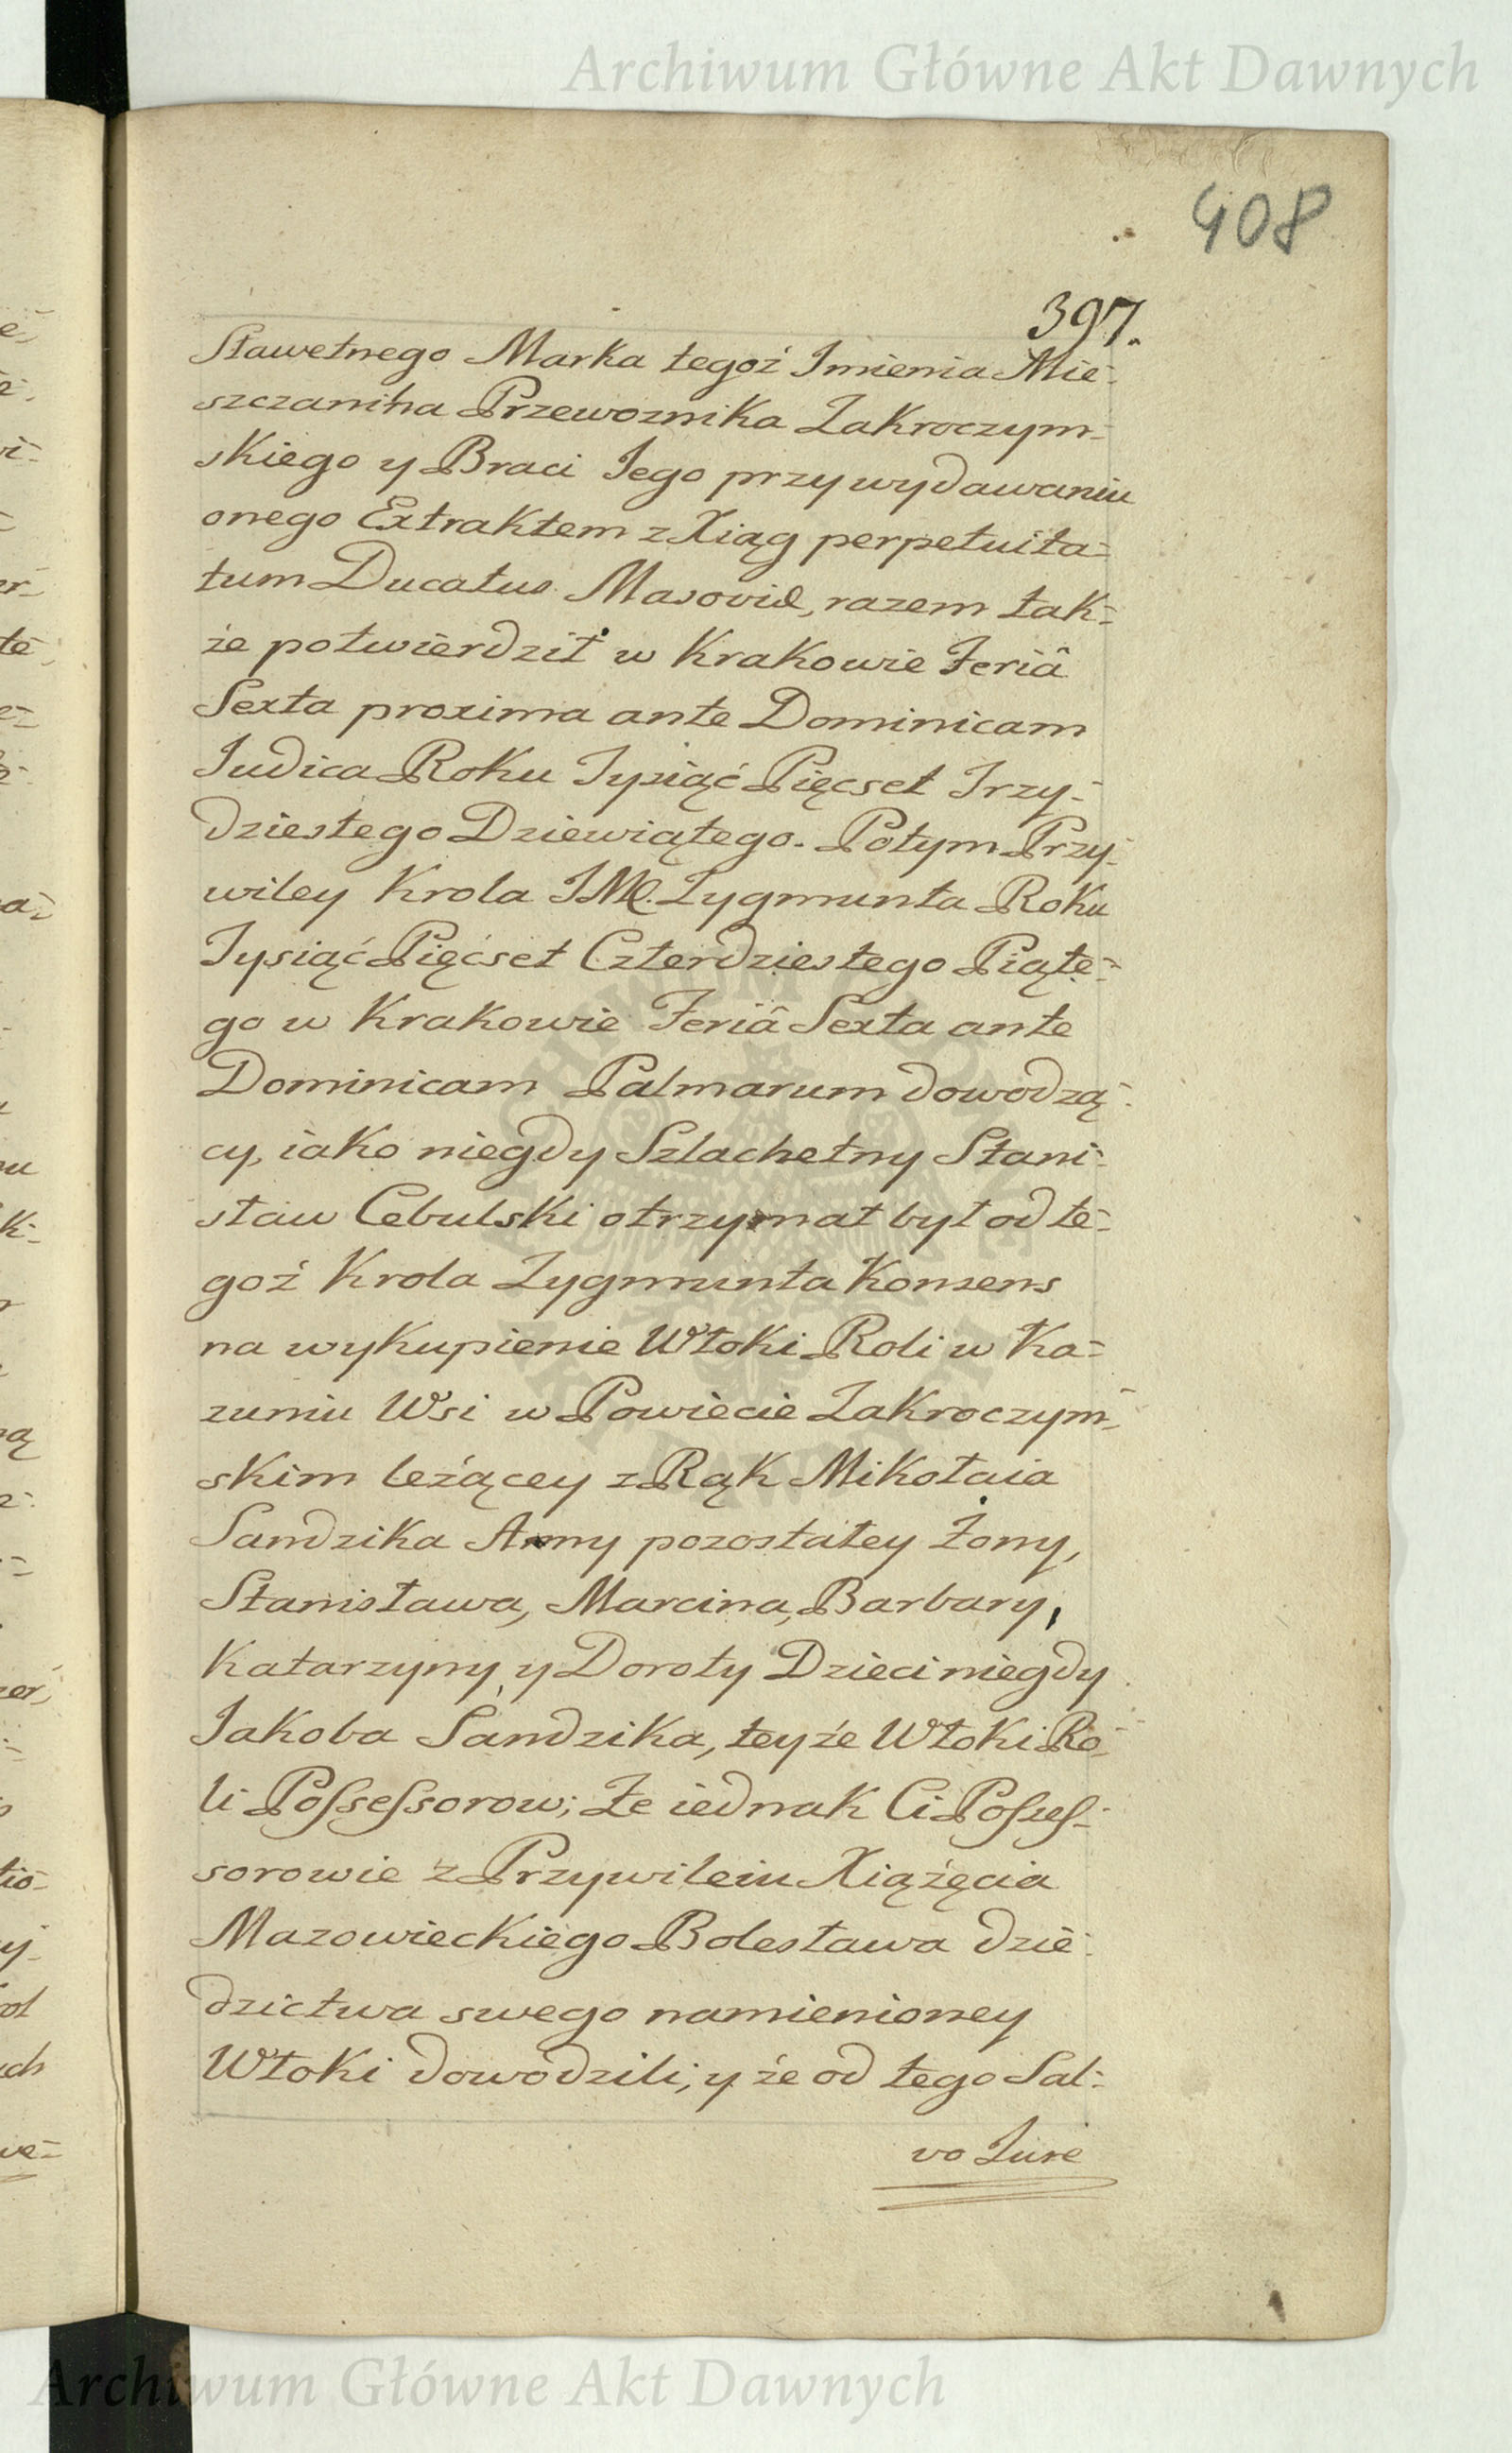 Archiwum Główne Akt Dawnych
408
397.
Sławetnego Marka tegoż Imienia Mie-
szczanina Przewoznika Zakroczym-
skiego y Braci Jego przy wydawaniu
onego Extraktem z Xiąg perpetuita-
tum Ducatus Masoviæ, razem tak-
że potwierdził w Krakowie Feriâ
Sexta proxima ante Dominicam
Judica Roku Tysiąć Pięcset Trzy-
dziestego Dziewiątego. Potym Przy-
wiley Krola JMC. Zygmunta Roku
Tysiąć Pięćset Czterdziestego Piąte-
go w Krakowie Feriâ Sexta ante
Dominicam Palmarum dowodzą-
cy, iako niegdy Szlachetny Stani-
sław Cebulski otrzymał był od te-
goż Krola Zygmunta Konsens
na wykupienie Włoki Roli w Ka-
zuniu Wsi w Powiecie Zakroczym-
skim leżącey z Rąk Mikołaia
Sandzika Anny pozostałey Żony,
Stanisława, Marcina, Barbary,
Katarzyny, y Doroty Dzieci niegdy
Jakoba Sandzika, teyże Włoki Ro-
li Possessorow; Że iednak Ci Posses-
sorowie z Przywileiu Xiążęcia
Mazowieckiego Bolesława dzie-
dzictwa swego namienioney
Włoki dowodzili; y że od tego Sal-
vo Jure
Archiwum Główne Akt Dawnych